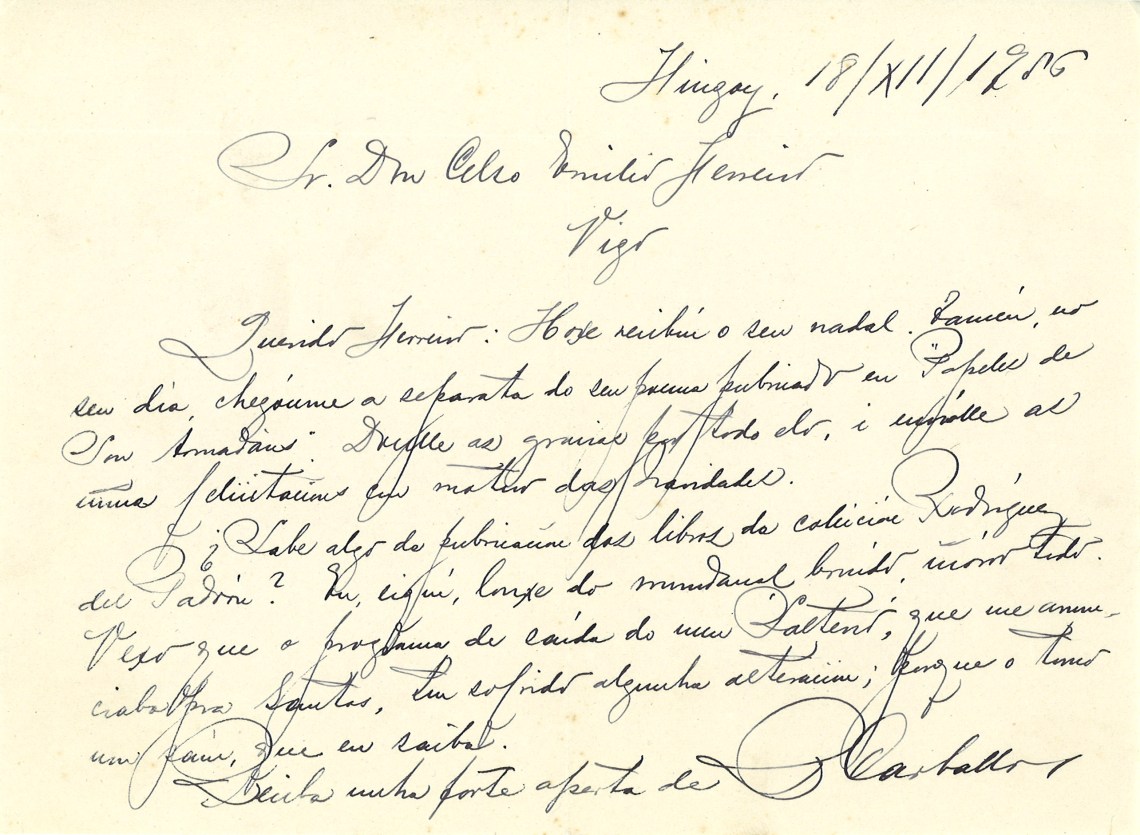 Hingoy, 18/XII/1956
Sr. Don Celso Emilio Ferreiro
Vigo
Querido Ferreiro: Hoxe recibín o seu nadal. Tamén, no
seu día, chegóume a separata do seu poema pubricado en "Papeles de
Son Armadáns". Doulle as gracias por todo elo, i envíolle as
miñas felicitacións con motivo das Navidades.
¿Sabe algo da pubricación dos libros da colección Rodríguez
del Padrón? Eu, eiquí, lonxe do mundanal bruído, inoro todo.
Vexo que o programa de saída do meu "Salterio", que me anun-
ciaba pra Santos, ten sofrido algunha alteración; porque o tomo
non saiu, que eu saiba.
Reciba unha forte aperta de R Carballo